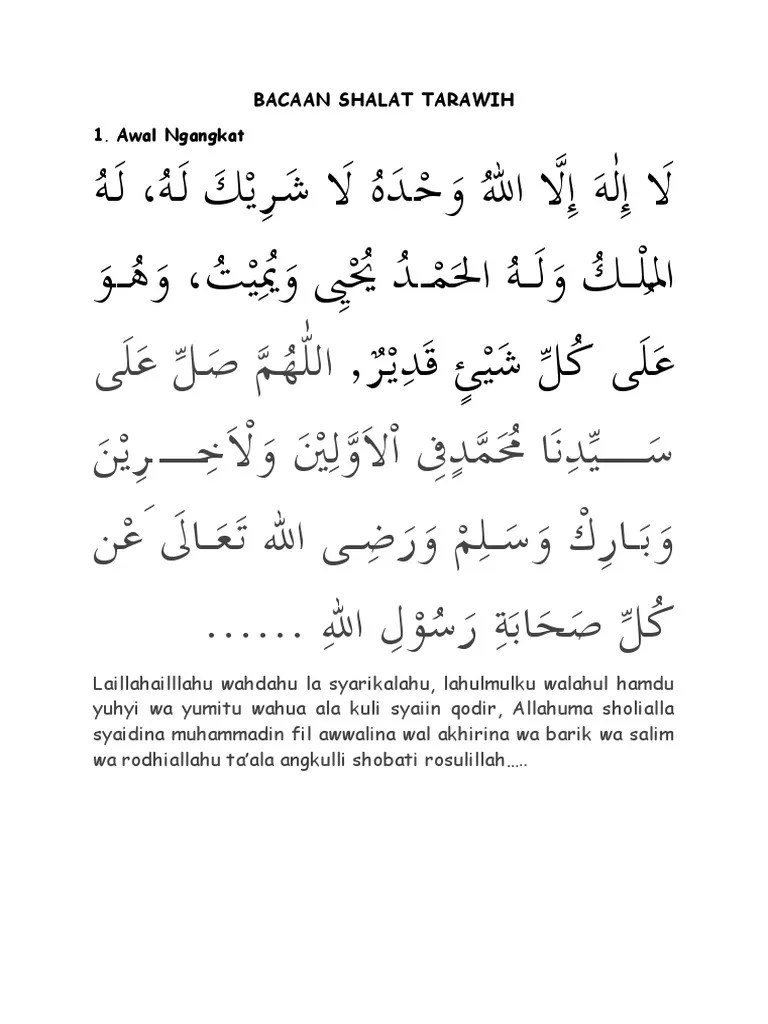 BACAAN SHALAT TARAWIH
1. Awal Ngangkat
لَا إِلٰهَ إِلَّا اللهُ وَحْدَهُ لَا شَرِيْكَ لَهُ، لَهُ
المُلْـكُ وَلَـهُ الحَمْـدُ يُحْيِى وَيُمِيْتُ، وَهُـوَ
عَلَى كُلِّ شَيْئٍ قَدِيْرٌ, اللّٰهُمَّ صَلِّ عَلَى
سَـــيِّدِنَا مُحَمَّدٍفِى اْلاَوَّلِيْنَ وَلْاَخِـــرِيْنَ
وَبَـارِكْ وَسَـلِمْ وَرَضِـى الله تَعَـالَى َعْن
كُلِّ صَحَابَةِ رَسُوْلِ اللهِ ......
Laillahailllahu wahdahu la syarikalahu, lahulmulku walahul hamdu
yuhyi wa yumitu wahua ala kuli syaiin qodir, Allahuma sholialla
syaidina muhammadin fil awwalina wal akhirina wa barik wa salim
wa rodhiallahu ta’ala angkulli shobati rosulillah…..